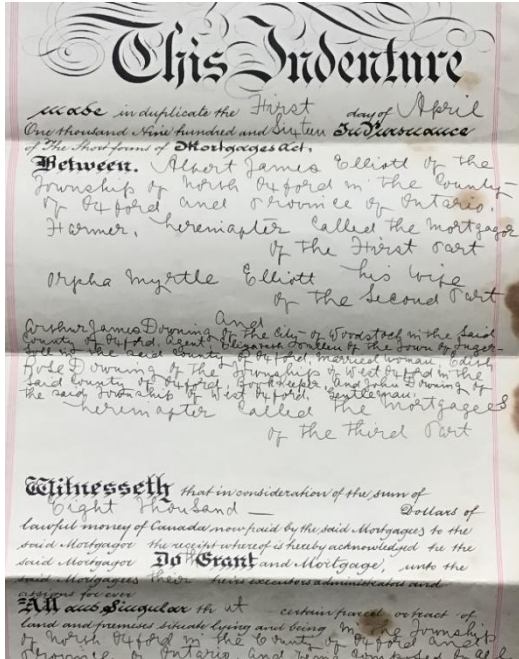 This Indenture
made in duplicate the First day of April
One thousand Nine hundred and Sixteen In Pursuance
of The Short forms of Mortgages Act,
Between. Albert James Elliott of the
Township of North Oxford in the County
of Oxford and Province of Ontario.
Farmer, hereinafter called the Mortgagor
of the First Part
Orpha Myrtle Elliott his wife
of the Second Part
And
Arthur James Downing of the City of Woodstock in the said
County of Oxford, Agent, Elizabeth of the Town of Inger-
soll in the said County of Oxford, married woman, Edith
Rose Downing of the Township of West Oxford in the
said County of Oxford, Bookkeeper, and John Downing of
the said Township of West Oxford, Gentleman.
hereinafter called the Mortgagees
of the third Part
Witnesseth that in consideration of the sum of
Eight Thousand — Dollars of
lawful money of Canada now paid by the said Mortgagees to the
said Mortgagor the receipt whereof is hereby acknowledged the
said Mortgagor Do th Grant and Mortgage, unto the
said Mortgagees their heirs executors administrators and
assigns for ever
All and Singular th at certain parcel or tract of
land and premises situate lying and being in the Township
of North Oxford in the County of Oxford and
Province of Ontario, and being composed of